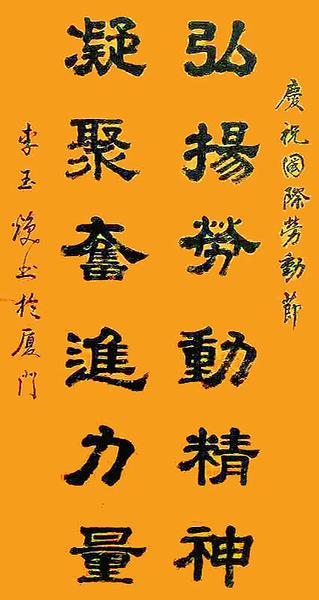 慶祝國際勞動節
弘揚勞動精神
凝聚奮進力量
李玉煥书於厦門